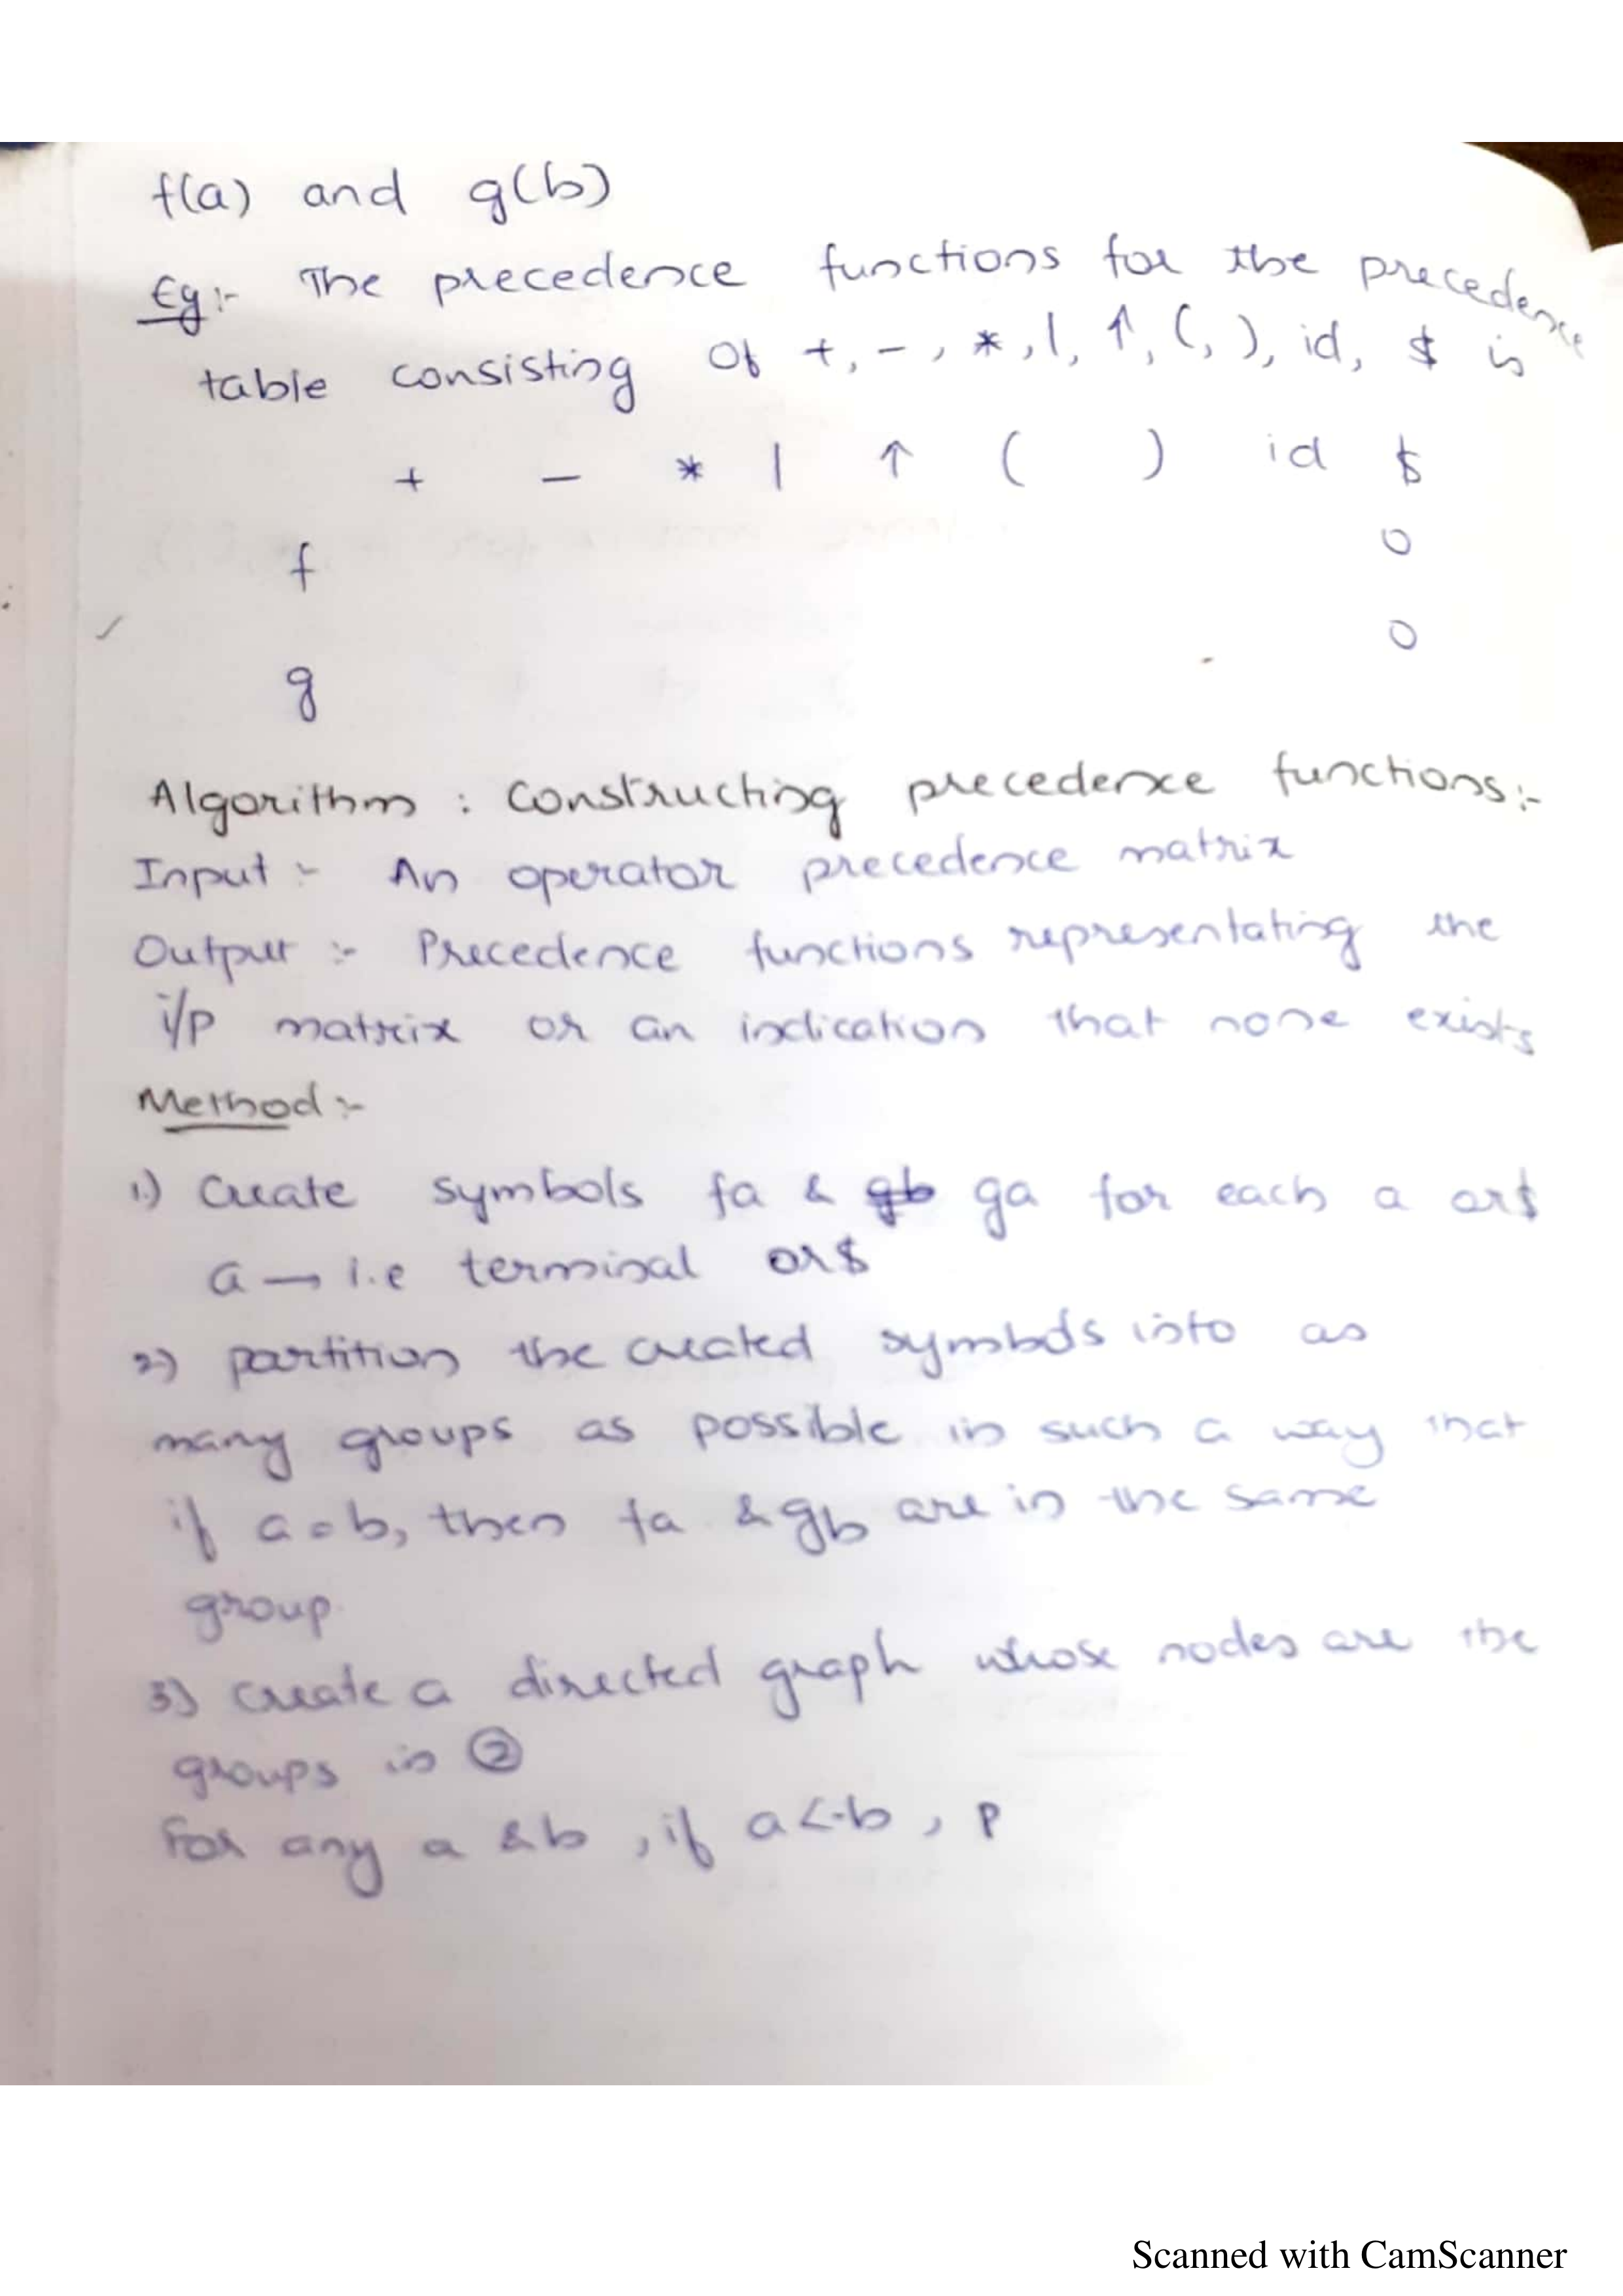 f(a) and g(b)
Eg:- The precedence functions for the precedence
table consisting of +, -, *, /, ↑, (, ), id, $ is
+ - * / ↑ ( ) id $
f 0
g 0
Algorithm : Constructing precedence functions:-
Input :- An operator precedence matrix
Output :- Precedence functions representating the
i/p matrix or an indication that none exists
Method :-
1.) Create symbols fa & gb ga for each a or $
a → i.e terminal or $
2) partition the created symbols into as
many groups as possible in such a way that
if a = b, then fa & gb are in the same
group.
3) create a directed graph whose nodes are the
groups in ②
For any a & b, if a <· b, p
Scanned with CamScanner